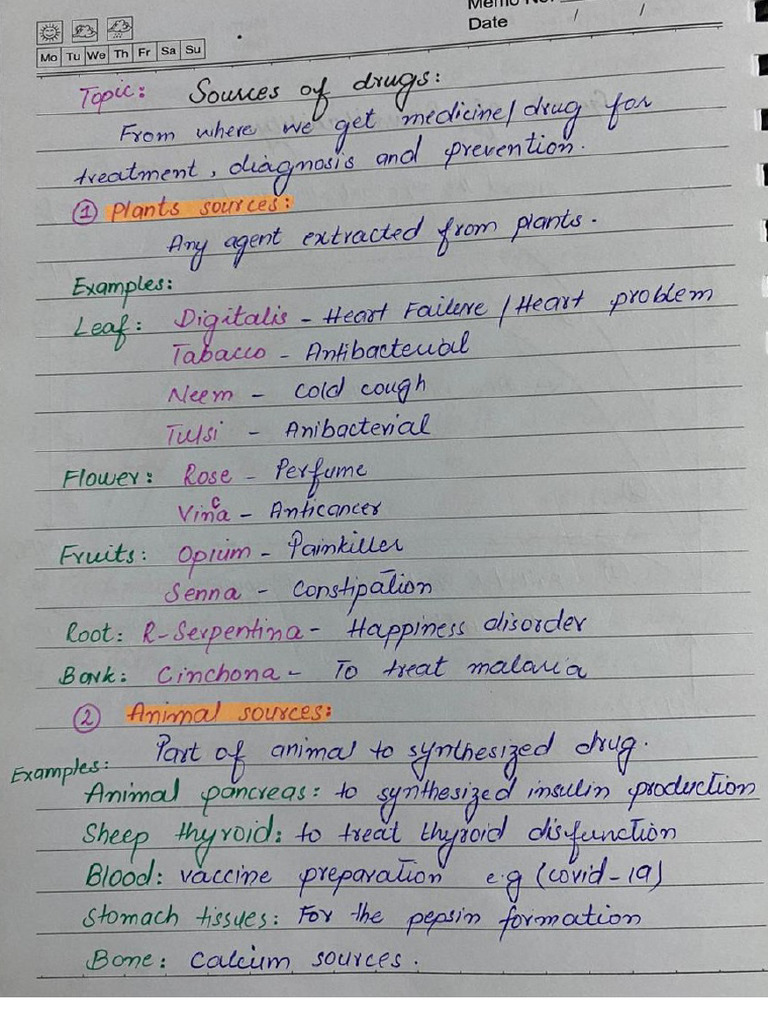 Memo No.
Date / /
Mo Tu We Th Fr Sa Su
Topic: Sources of drugs:
From where we get medicine/drug for
treatment, diagnosis and prevention.
① Plants sources:
Any agent extracted from plants.
Examples:
Leaf: Digitalis - Heart Failure / Heart problem
Tabacco - Antibacterial
Neem - cold cough
Tulsi - Anibacterial
Flower: Rose - Perfume
Vinca - Anticancer
Fruits: Opium - Painkiller
Senna - Constipation
Root: R-Serpentina - Happiness disorder
Bark: Cinchona - To treat malaria
② Animal sources:
Part of animal to synthesized drug.
Examples:
Animal pancreas: to synthesized insulin production
Sheep thyroid: to treat thyroid disfunction
Blood: vaccine preparation e.g (covid-19)
Stomach tissues: For the pepsin formation
Bone: Calcium sources.